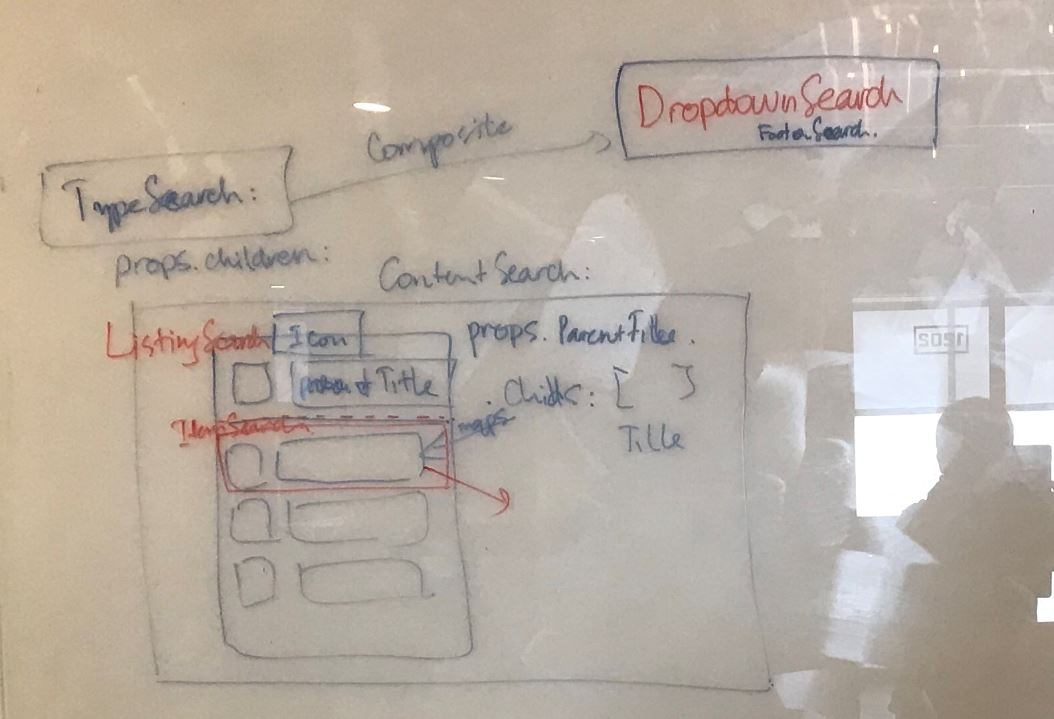 DropdownSearch
FooterSearch.
Composite
TypeSearch:
props.children:
ContentSearch:
ListingSearch
Icon
props.ParentTitle.
Title
. Childs: [ ]
ItemSearch
maps
Title